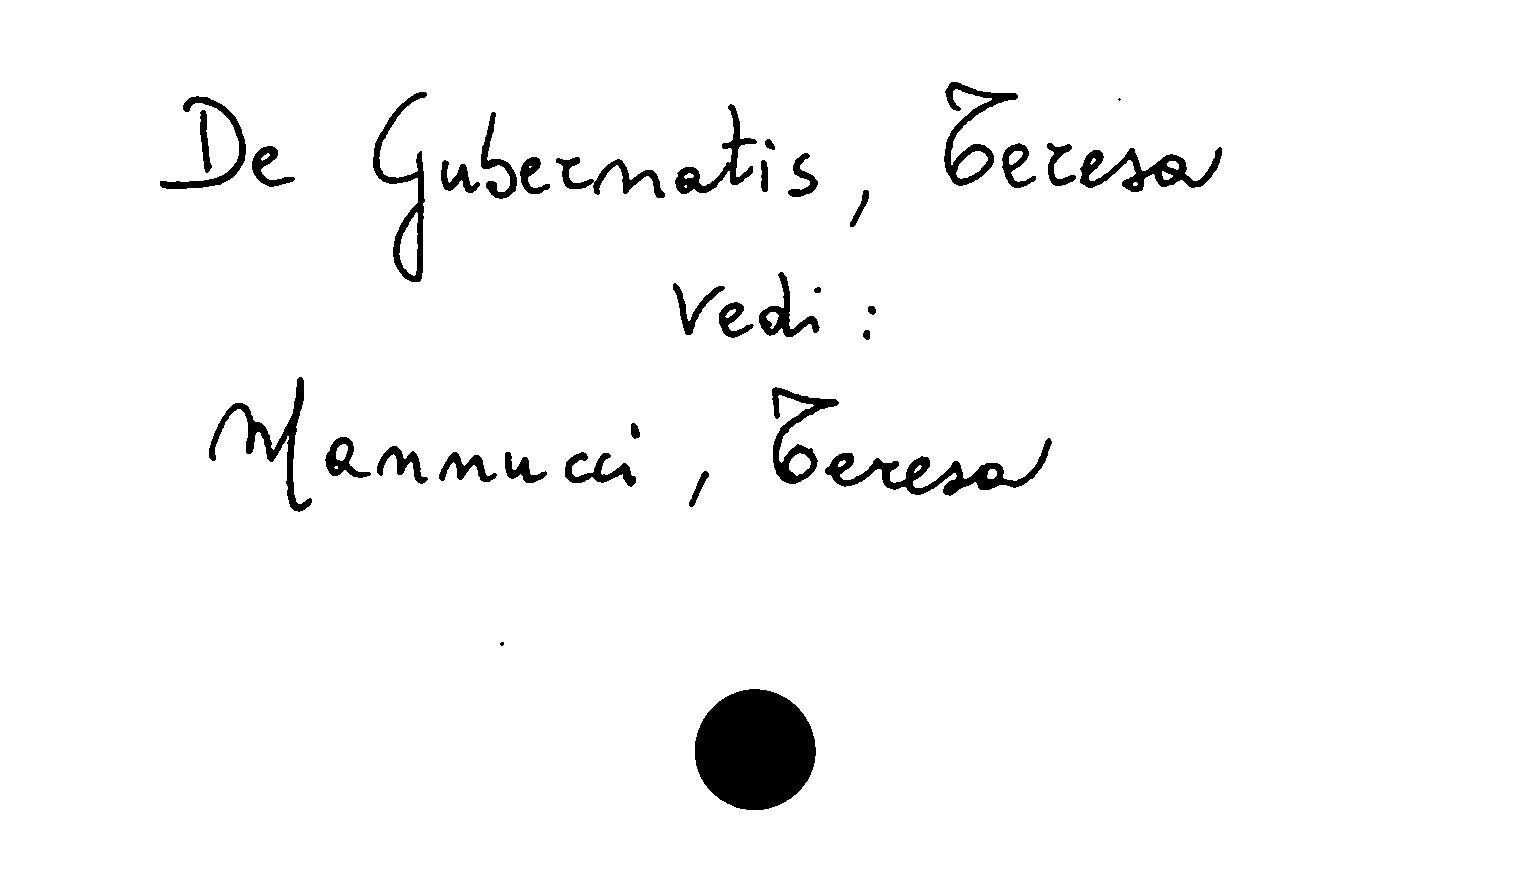 De Gubernatis, Teresa
Vedi:
Mannucci, Teresa